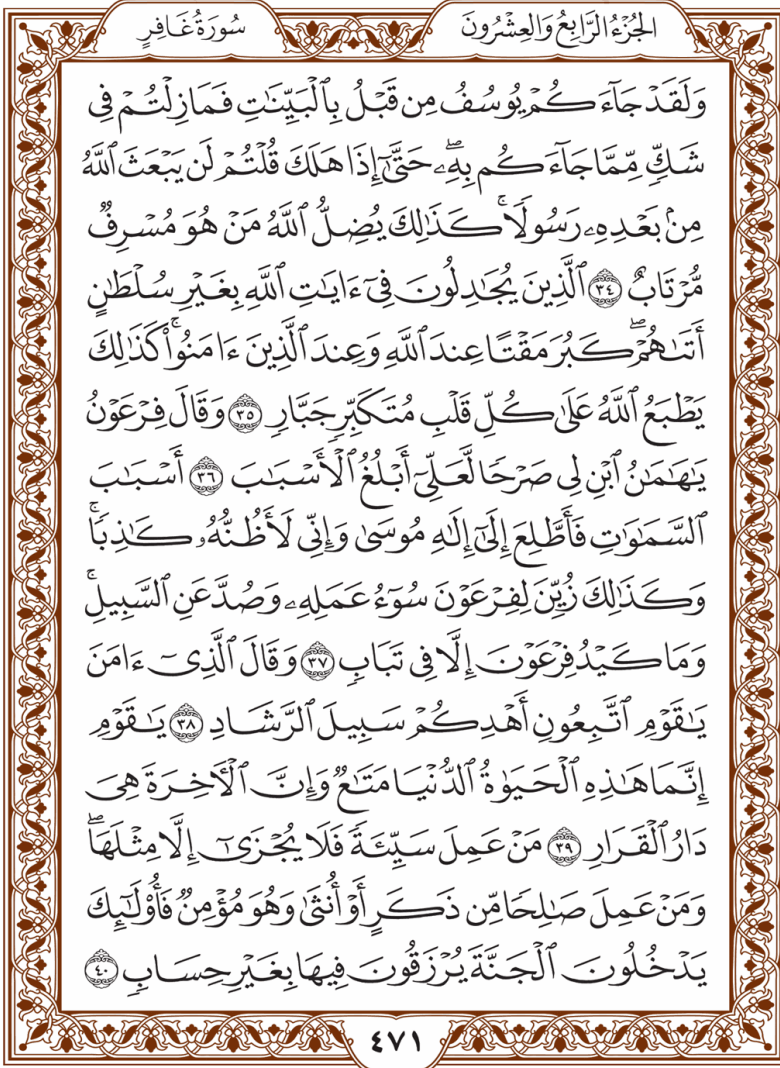 الجُزْءُ الرَّابِعُ وَالعِشْرُونَ
سُورَةُ غَافِرٍ
وَلَقَدْ جَآءَكُمْ يُوسُفُ مِن قَبْلُ بِٱلْبَيِّنَٰتِ فَمَا زِلْتُمْ فِى
شَكٍّ مِّمَّا جَآءَكُم بِهِۦۖ حَتَّىٰٓ إِذَا هَلَكَ قُلْتُمْ لَن يَبْعَثَ ٱللَّهُ
مِنۢ بَعْدِهِۦ رَسُولًاۚ كَذَٰلِكَ يُضِلُّ ٱللَّهُ مَنْ هُوَ مُسْرِفٌ
مُّرْتَابٌ ٣٤ ٱلَّذِينَ يُجَٰدِلُونَ فِىٓ ءَايَٰتِ ٱللَّهِ بِغَيْرِ سُلْطَٰنٍ
أَتَىٰهُمْۖ كَبُرَ مَقْتًا عِندَ ٱللَّهِ وَعِندَ ٱلَّذِينَ ءَامَنُوا۟ۚ كَذَٰلِكَ
يَطْبَعُ ٱللَّهُ عَلَىٰ كُلِّ قَلْبِ مُتَكَبِّرٍ جَبَّارٍ ٣٥ وَقَالَ فِرْعَوْنُ
يَٰهَٰمَٰنُ ٱبْنِ لِى صَرْحًا لَّعَلِّىٓ أَبْلُغُ ٱلْأَسْبَٰبَ ٣٦ أَسْبَٰبَ
ٱلسَّمَٰوَٰتِ فَأَطَّلِعَ إِلَىٰٓ إِلَٰهِ مُوسَىٰ وَإِنِّى لَأَظُنُّهُۥ كَٰذِبًاۚ
وَكَذَٰلِكَ زُيِّنَ لِفِرْعَوْنَ سُوٓءُ عَمَلِهِۦ وَصُدَّ عَنِ ٱلسَّبِيلِۚ
وَمَا كَيْدُ فِرْعَوْنَ إِلَّا فِى تَبَابٍ ٣٧ وَقَالَ ٱلَّذِىٓ ءَامَنَ
يَٰقَوْمِ ٱتَّبِعُونِ أَهْدِكُمْ سَبِيلَ ٱلرَّشَادِ ٣٨ يَٰقَوْمِ
إِنَّمَا هَٰذِهِ ٱلْحَيَوٰةُ ٱلدُّنْيَا مَتَٰعٌ وَإِنَّ ٱلْءَاخِرَةَ هِىَ
دَارُ ٱلْقَرَارِ ٣٩ مَنْ عَمِلَ سَيِّئَةً فَلَا يُجْزَىٰٓ إِلَّا مِثْلَهَاۖ
وَمَنْ عَمِلَ صَٰلِحًا مِّن ذَكَرٍ أَوْ أُنثَىٰ وَهُوَ مُؤْمِنٌ فَأُو۟لَٰٓئِكَ
يَدْخُلُونَ ٱلْجَنَّةَ يُرْزَقُونَ فِيهَا بِغَيْرِ حِسَابٍ ٤٠
٤٧١